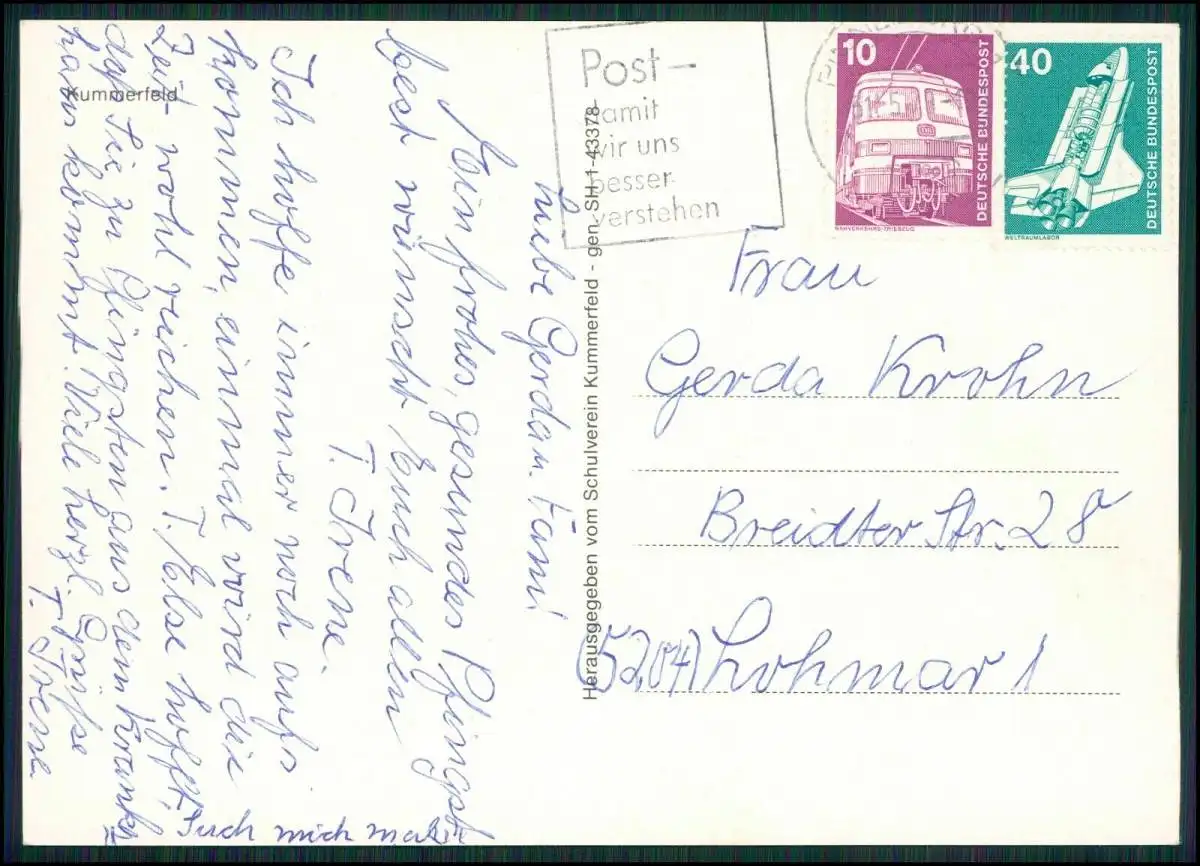 Kummerfeld
Liebe Gerda u. Fam!
Ein frohes, gesundes Pfingst
best wünscht Euch allen
T. Irene.
Ich hoffe immer noch aufs
kommen, einmal wird die
Zeit wohl reichen. T. Else hofft,
daß sie zu Pfingsten aus dem Kranken
haus kommt! Viele herzl. Grüße
T. Irene
Such mich mal
Herausgegeben vom Schulverein Kummerfeld - gen. SH 1-43378
Post-
damit
wir uns
besser
verstehen
10
DEUTSCHE BUNDESPOST
NAHVERKEHRS-TRIEBZUG
40
DEUTSCHE BUNDESPOST
WELTRAUMLABOR
Frau
Gerda Krohn
Breidter Str. 28
(5204) Lohmar 1